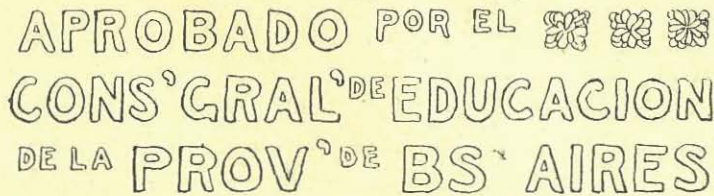 APROBADO POR EL
CONS’ GRAL’ DE EDUCACION
DE LA PROV’ DE BS’ AIRES